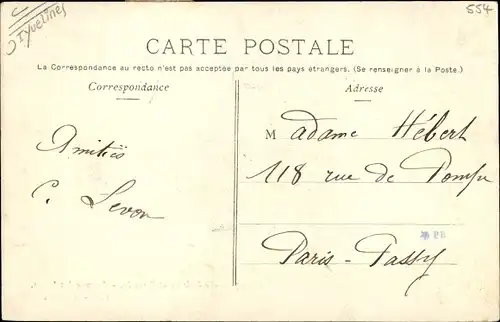 Yvelines
554
CARTE POSTALE
La Correspondance au recto n'est pas acceptée par tous les pays étrangers. (Se renseigner à la Poste.)
Correspondance
Adresse
Amitiés
C. Levon
Madame Hébert
118 rue de Pompe
Paris-Passy